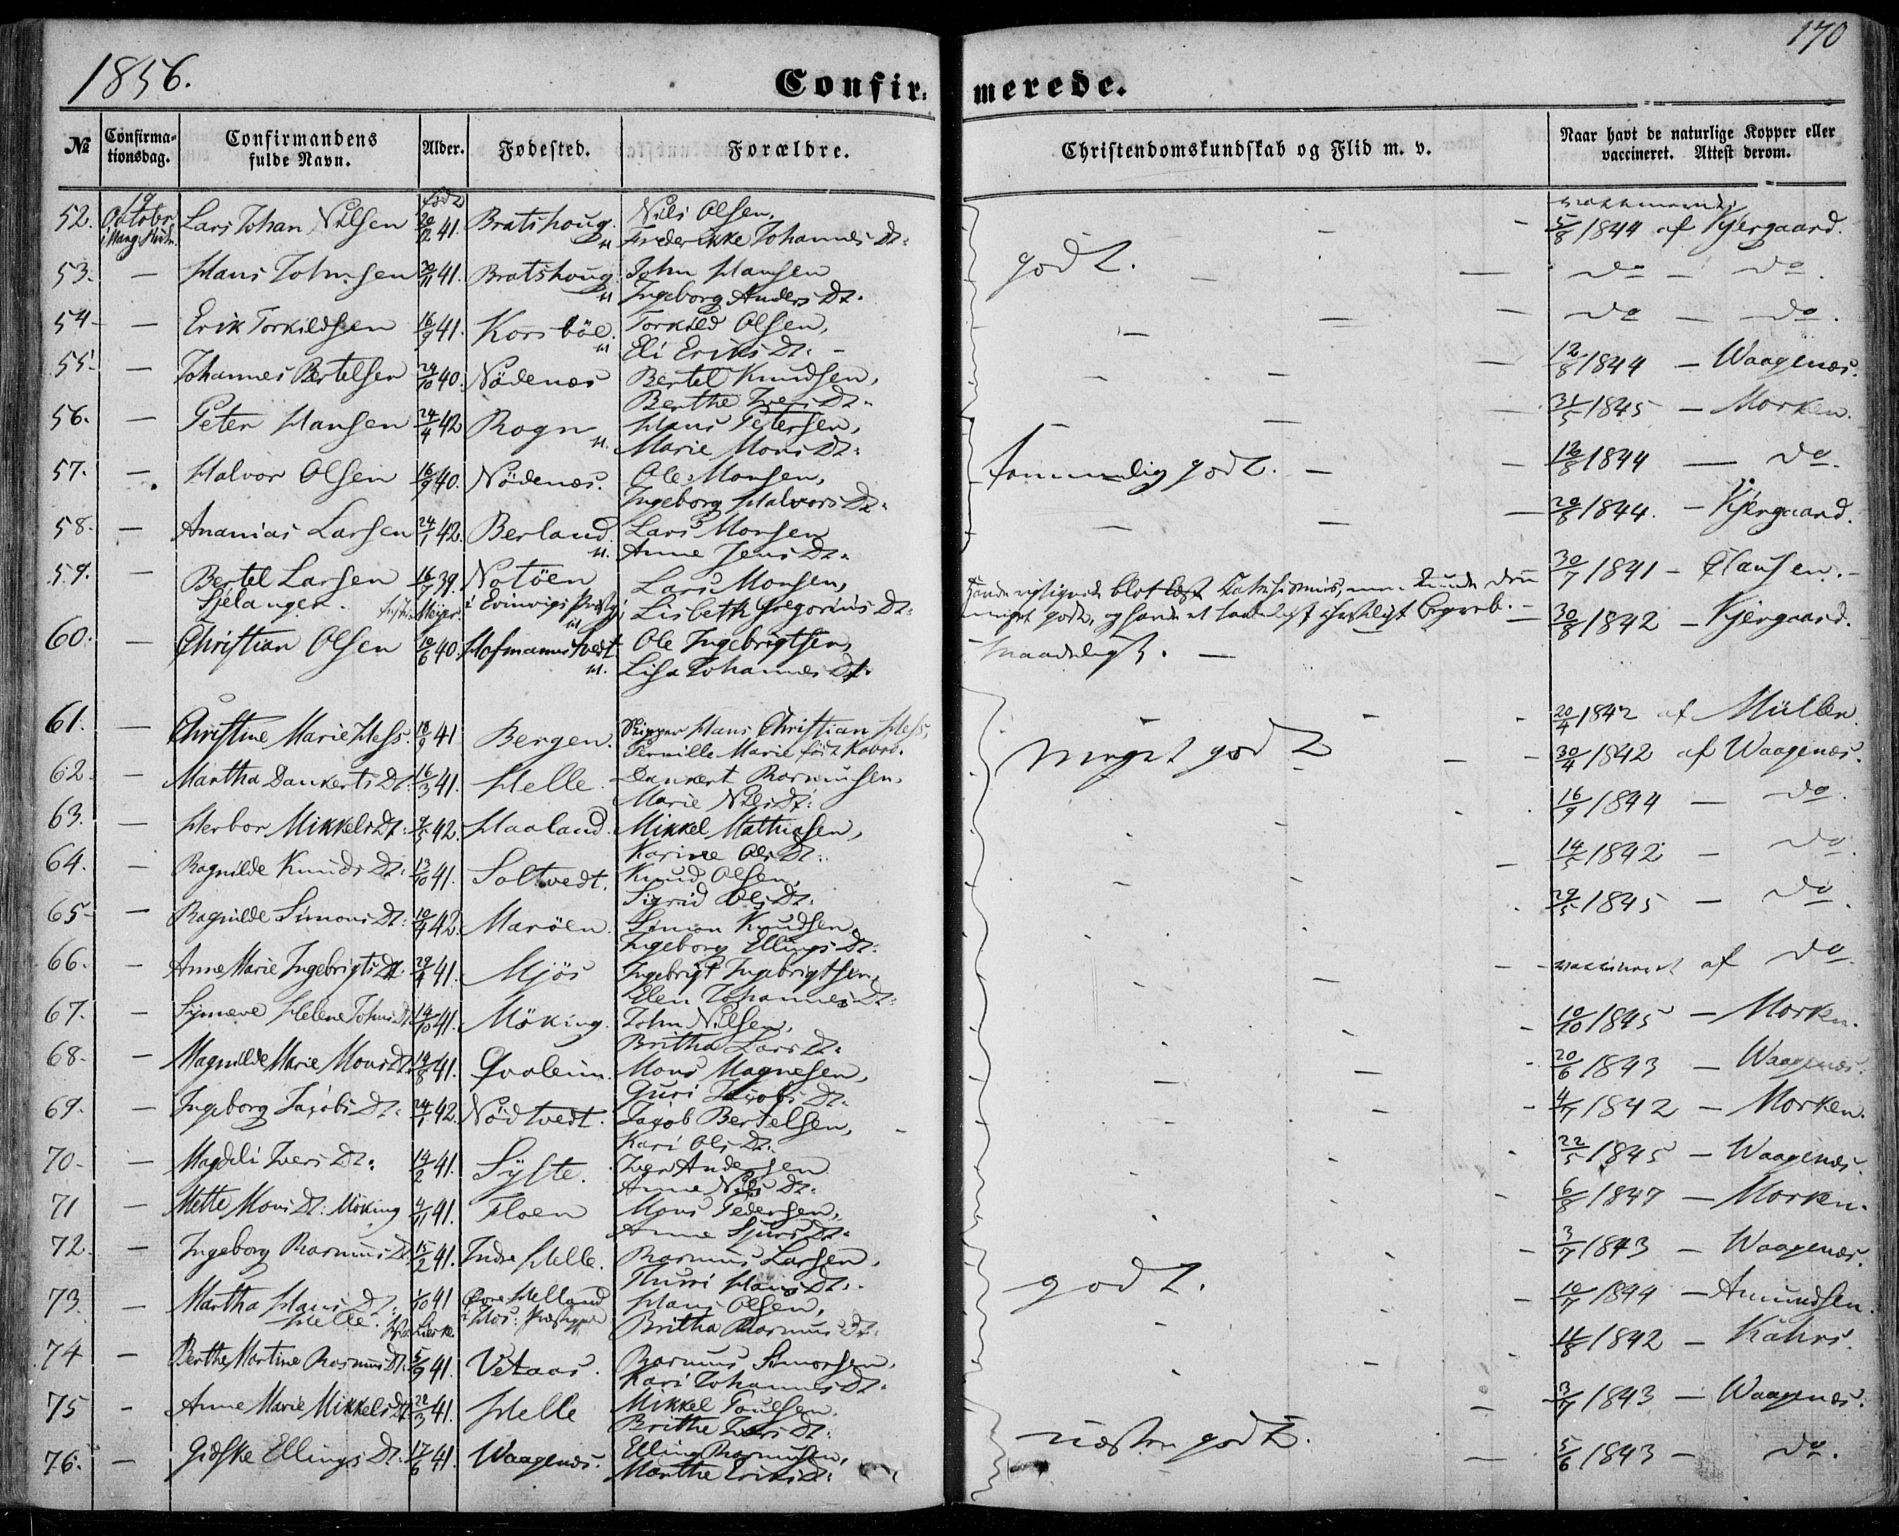 1856.
170
Confir-
merede.
№
Confirma-
tionsdag.
Confirmandens
fulde Navn.
Alder.
Fødested.
Forældre.
Christendomskundskab og Flid m. v.
Naar havt de naturlige Kopper eller
vaccineret. Attest derom.
52. 19 October Lars Johan Nilsen født 20/2 41. Bratshoug Nils Olsen, 5/8 1844 af Kjergaard.
Frederikke Johannes Dt.
godt.
53. — Hans Johnsen 41. Bratshoug John Hansen — do — do.
Ingeborg Anders Dt.
54 — Erik Torkildsen 16/9 41. Korsböe. Torkild Olsen, — do — do.
Eli Eriks Dt.
55. — Johannes Bertelsen 24/10 40. Nödenæs Bertel Knudsen, 12/8 1844 — Waagenæs.
Berthe Ivers Dt.
56. — Peter Hansen 24/4 42 Rogn Hans Petersen, 31/5 1845 — Morken.
Marie Mons Dt.
57. — Halvor Olsen 16/9 40. Nödenæs. Ole Monsen, temmelig godt. 12/8 1844 — do.
Ingeborg Halvors Dt.
58. — Ananias Larsen 24/1 42. Berland. Lars Monsen 20/8 1844. — Kjergaard.
Anne Jens Dt.
59. Bertel Larsen 16/7 39. Notöen Lars Monsen, 30/7 1841 — Clausen.
Sjelanger. i Evinvigs Præstgj. Lisbeth Gregorius Dt.
blot læst Katekismus, men kunde den
meget godt, og havde et
60. — Christian Olsen 10/6 40. Hofmannstvedt Ole Ingebrigtsen, Maadeligt. 30/8 1842 — Kjergaard.
Lisa Johannes Dt.
61. — Christine Marie Hess. 18/9 41 Bergen. Skipper Hans Christian Hess, 20/4 1842 af Müller.
Pernille Marie født
meget godt
62. — Martha Dankerts Dt. 16/3 41. Helle. Dankert Rasmussen, 30/4 1842 af Waagenæs.
Marie Nils Dt.
63. — Herbor Mikkels Dt. 42. Haaland. Mikkel Mathiasen, 16/9 1844 — do.
Karine Ols Dt.
64. — Ragnilde Knuds Dt. 13/10 41. Soltvedt. Knud Olsen, 14/5 1842 — do.
Sigrid Ols Dt.
65 — Ragnilde Simons Dt. 42. Maröen. Simon Knudsen 29/5 1845 — do.
Ingeborg Ellings Dt.
66. — Anne Marie Ingebrigts Dt. 29/4 41. Mjös Ingebrigt Ingebrigtsen, vaccineret af do.
Elen Johannes Dt.
67. — Synneve Helene Johns Dt. 14/10 41. Möking. John Nilsen, 10/10 1845 — Morken.
Britha Lars Dt.
68. — Magnilde Marie Mons Dt. 14/8 41. Qvaleim. Mons Magnesen, 20/6 1843 — Waagenæs.
Guri Jacobs Dt.
69. — Ingeborg Jacobs Dt. 24/1 42. Nödtvedt. Jacob Bertelsen, 4/7 1842 — Morken.
Kari Ols Dt.
70. — Magdeli Ivers Dt. 14/2 41. Sylte. Iver Andersen 22/5 1845 — Waagenæs.
Anne Nils Dt.
71 — Mette Mons Dt. Möking 4/11 41. Floen Mons Pedersen, 6/8 1847 — Morken.
Anne Sjurs Dt.
72. — Ingeborg Rasmus Dt. 15/2 41. Indre Helle. Rasmus Larsen, 3/7 1843 — Waagenæs.
Hans Dt.
godt.
73. — Martha Hans Dt. 1/10 41 Øvre Helland Hans Olsen, 10/7 1844 — Amundsen.
Helle. i Hos: Præstegj. Britha Rasmus Dt.
74 — Berthe Martine Rasmus Dt. 5/9 41. Vetaas. Rasmus Simonsen, 11/8 1842 — Kahrs.
Kari Johannes Dt.
75 — Anne Marie Mikkels Dt. 22/3 41. Helle Mikkel Poulsen. 3/7 1843 — Waagenæs.
Brithe Ivers Dt.
næsten godt.
76. — Gidske Ellings Dt. 17/6 41. Waagenæs. Elling Rasmusen, 5/6 1843 — do.
Marthe Eriks Dt.